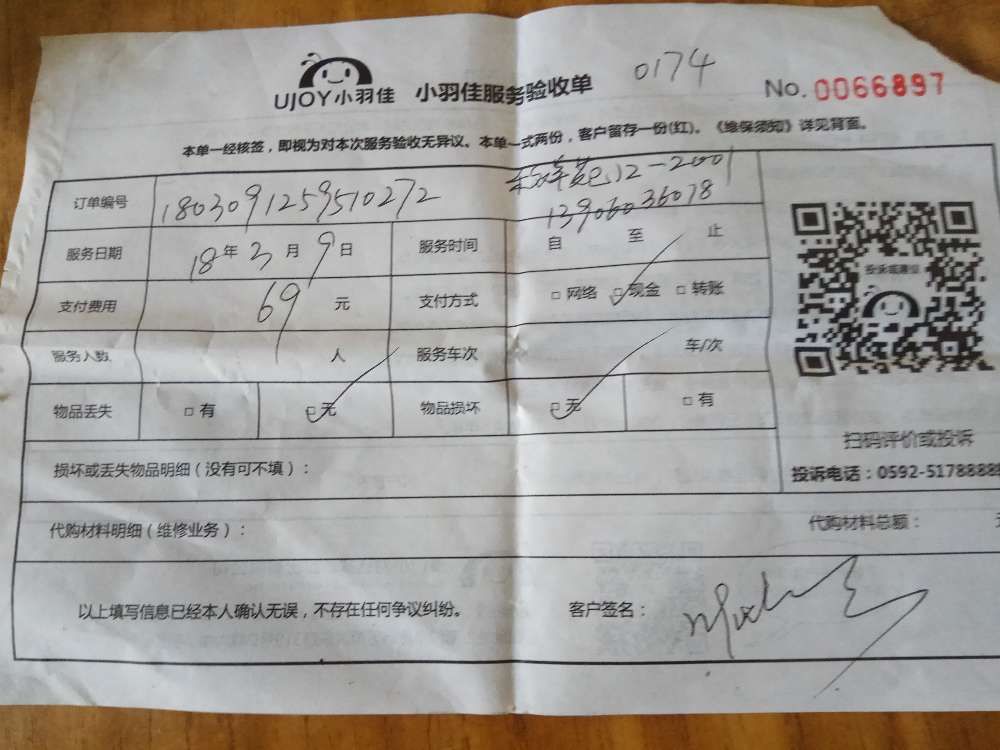 UJOY小羽佳 小羽佳服务验收单 0174 No. 0066897
本单一经核签，即视为对本次服务验收无异议。本单一式两份，客户留存一份(红)。《维保须知》详见背面。
订单编号 1803091259510272 12-2001
13906036078
服务日期 18年3月9日 服务时间 自 至 止
支付费用 69 元 支付方式 □ 网络 □ 现金 □ 转账
服务人数 人 服务车次 车/次
物品丢失 □ 有 □ 无 物品损坏 □ 无 □ 有
投诉或建议
扫码评价或投诉
投诉电话：0592-5178888
损坏或丢失物品明细（没有可不填）：
代购材料明细（维修业务）： 代购材料总额：
以上填写信息已经本人确认无误，不存在任何争议纠纷。 客户签名：